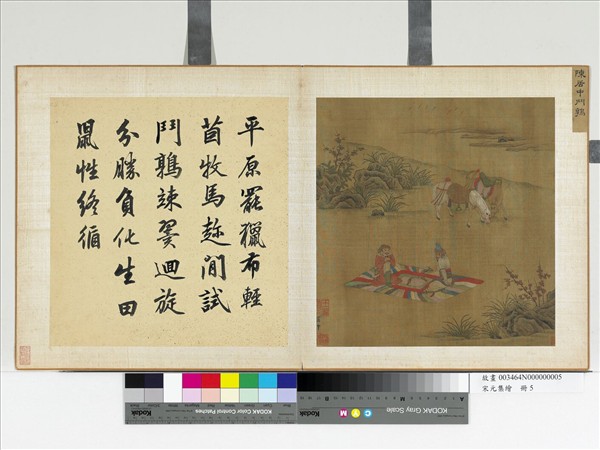 陳居中鬥鶉
平原罷獵布輕
茵牧馬趂閒試
鬥鶉竦翼迴旋
分勝負化生田
鼠性終循
故畫 003464N000000005
宋元集繪 冊 5
Kodak
KODAK Color Control Patches
KODAK Gray Scale
C Y M
Kodak